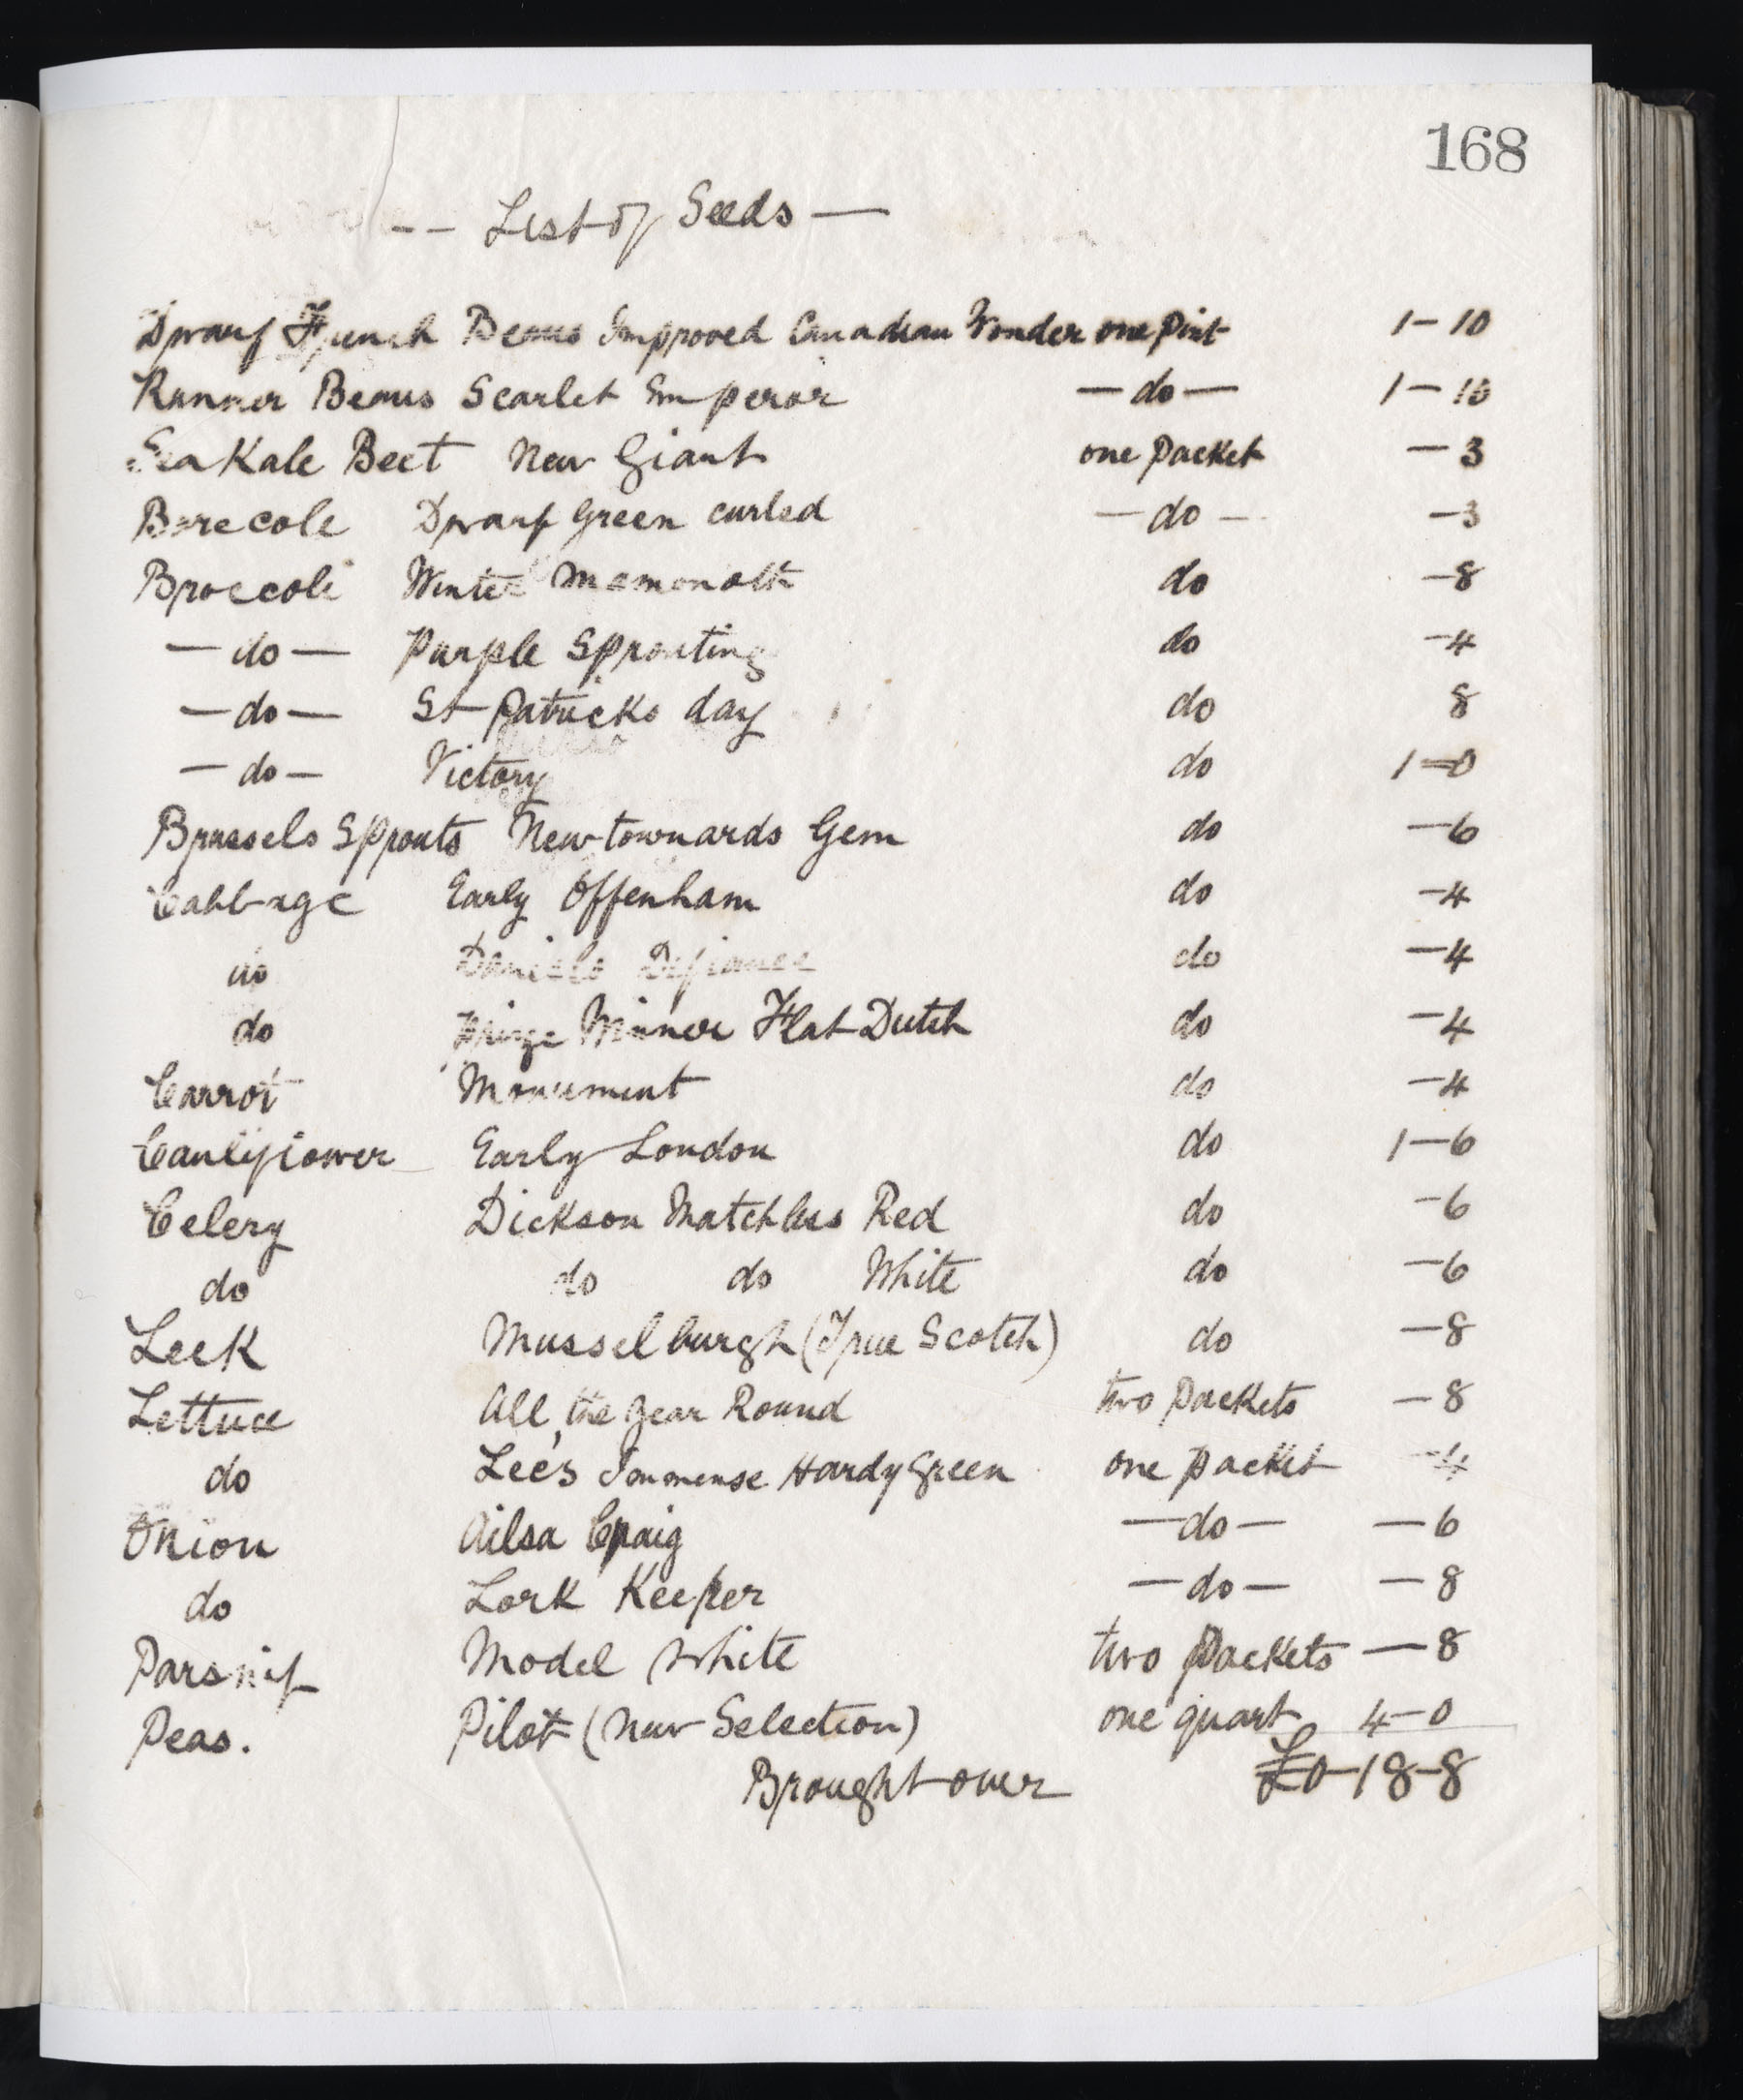 168
-- List of Seeds —
Dwarf French Beans Improved Canadian Wonder one pint 1-10
Runner Beans Scarlet Emperor — do — 1-10
Sea Kale Beet New Giant one packet - 3
Borecole Dwarf Green curled - do - -3
Broccoli Winter Mammoth do -8
— do — Purple Sprouting do -4
— do — St Patricks day do 8
— do — Victory do 1=0
Brussels Sprouts Newtownards Gem do -6
Cabbage Early Offenham do -4
do Daniels Defiance do -4
do Prize Winner Flat Dutch do -4
Carrot Monument do -4
Cauliflower Early London do 1-6
Celery Dickson Matchless Red do -6
do do do White do -6
Leek Musselburgh (True Scotch) do -8
Lettuce All the year Round two packets - 8
do Lee's Immense Hardy Green one packet -4
Onion Ailsa Craig — do — — 6
do Lork Keeper — do — — 8
Parsnip Model White two packets — 8
Peas. Pilot (New Selection) one quart 4-0
Brought over £0-18-8